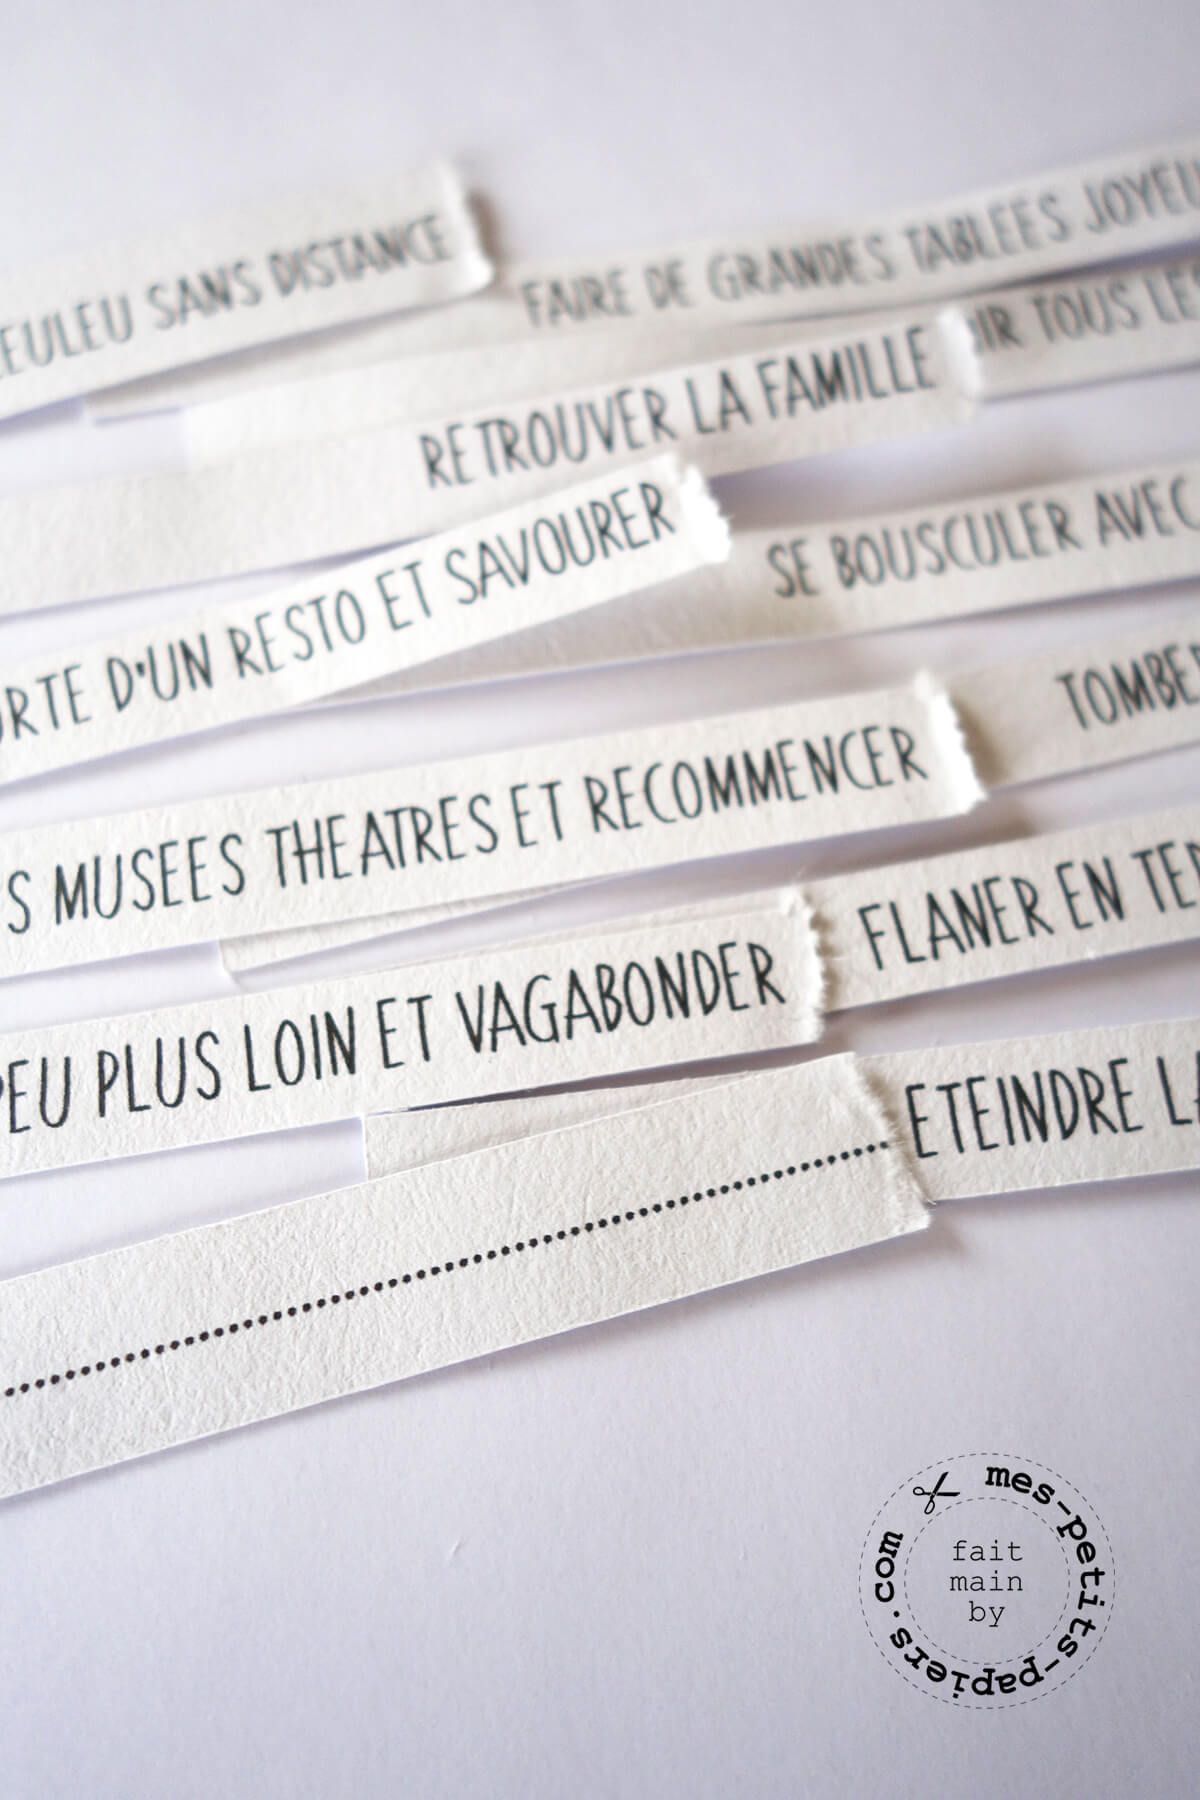 EULEU SANS DISTANCE
FAIRE DE GRANDES TABLEES JOYEU
IR TOUS LES
RETROUVER LA FAMILLE
SE BOUSCULER AVEC
RTE D'UN RESTO ET SAVOURER
TOMBER
S MUSEES THEATRES ET RECOMMENCER
FLANER EN TE
PEU PLUS LOIN ET VAGABONDER
ETEINDRE LA
mes-petits-papiers.com
fait
main
by